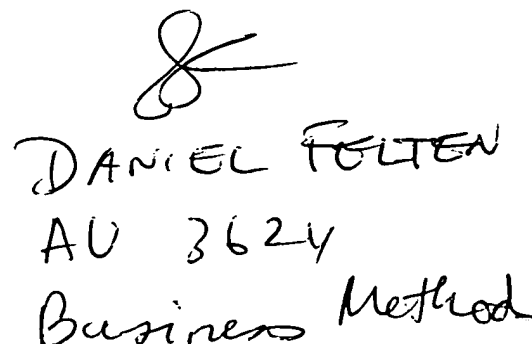 DANIEL FELTEN
AU 3624
Business Method